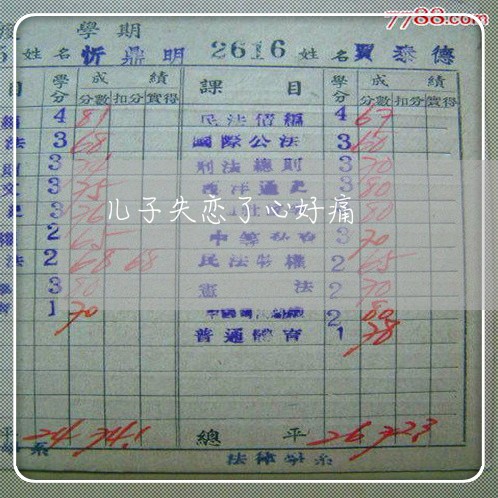 7788.com
學 期
姓名 忻鼎明 2616 姓名 賈泰德
目 學分 成績 課目 學分 成績
分數 扣分 實得 分數 扣分 實得
4 81 民法債編 4 67
法 3 68 國際公法 3 60
3 刑法總則 3 70
3 75 西洋通史 3 80
3 3 80
權 2 65 中等 3 70
法 2 68 68 民法物權 2 65
3 80 憲法 2 70
1 70 2 80
普通體育 1 78
儿子失恋了心好痛
平 24 74.1 總平 26 72.3
系 法律學系